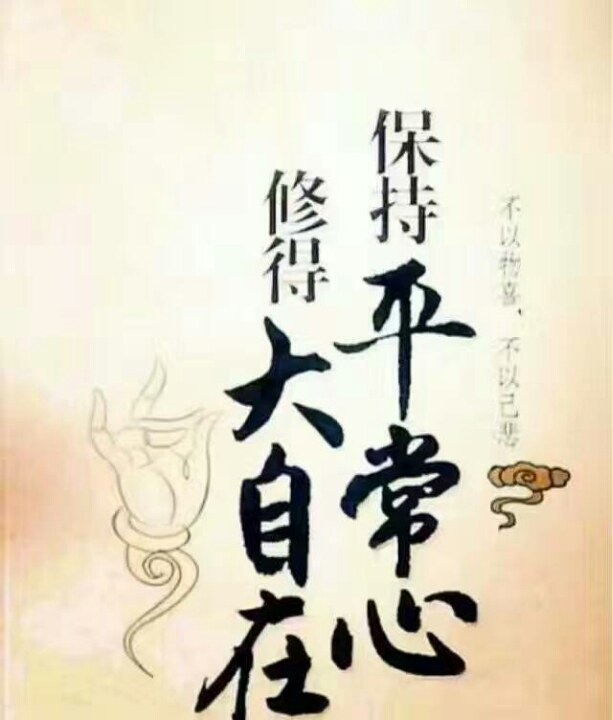 不以物喜、不以己悲
保持平常心
修得大自在